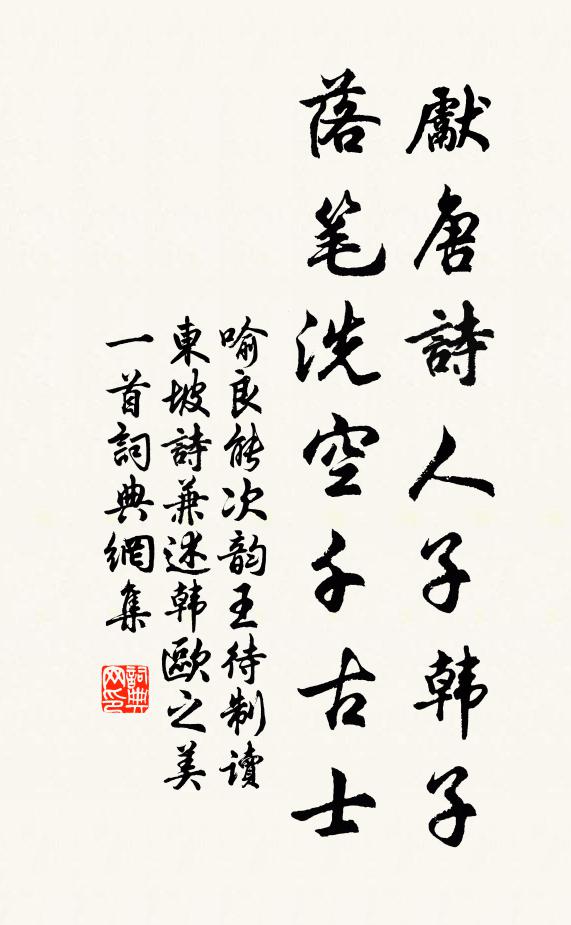 獻唐詩人子韩子
落笔洗空千古士
喻良能次韵王待制读
東坡詩兼述韩歐之美
一首詞典網集
詞典网印